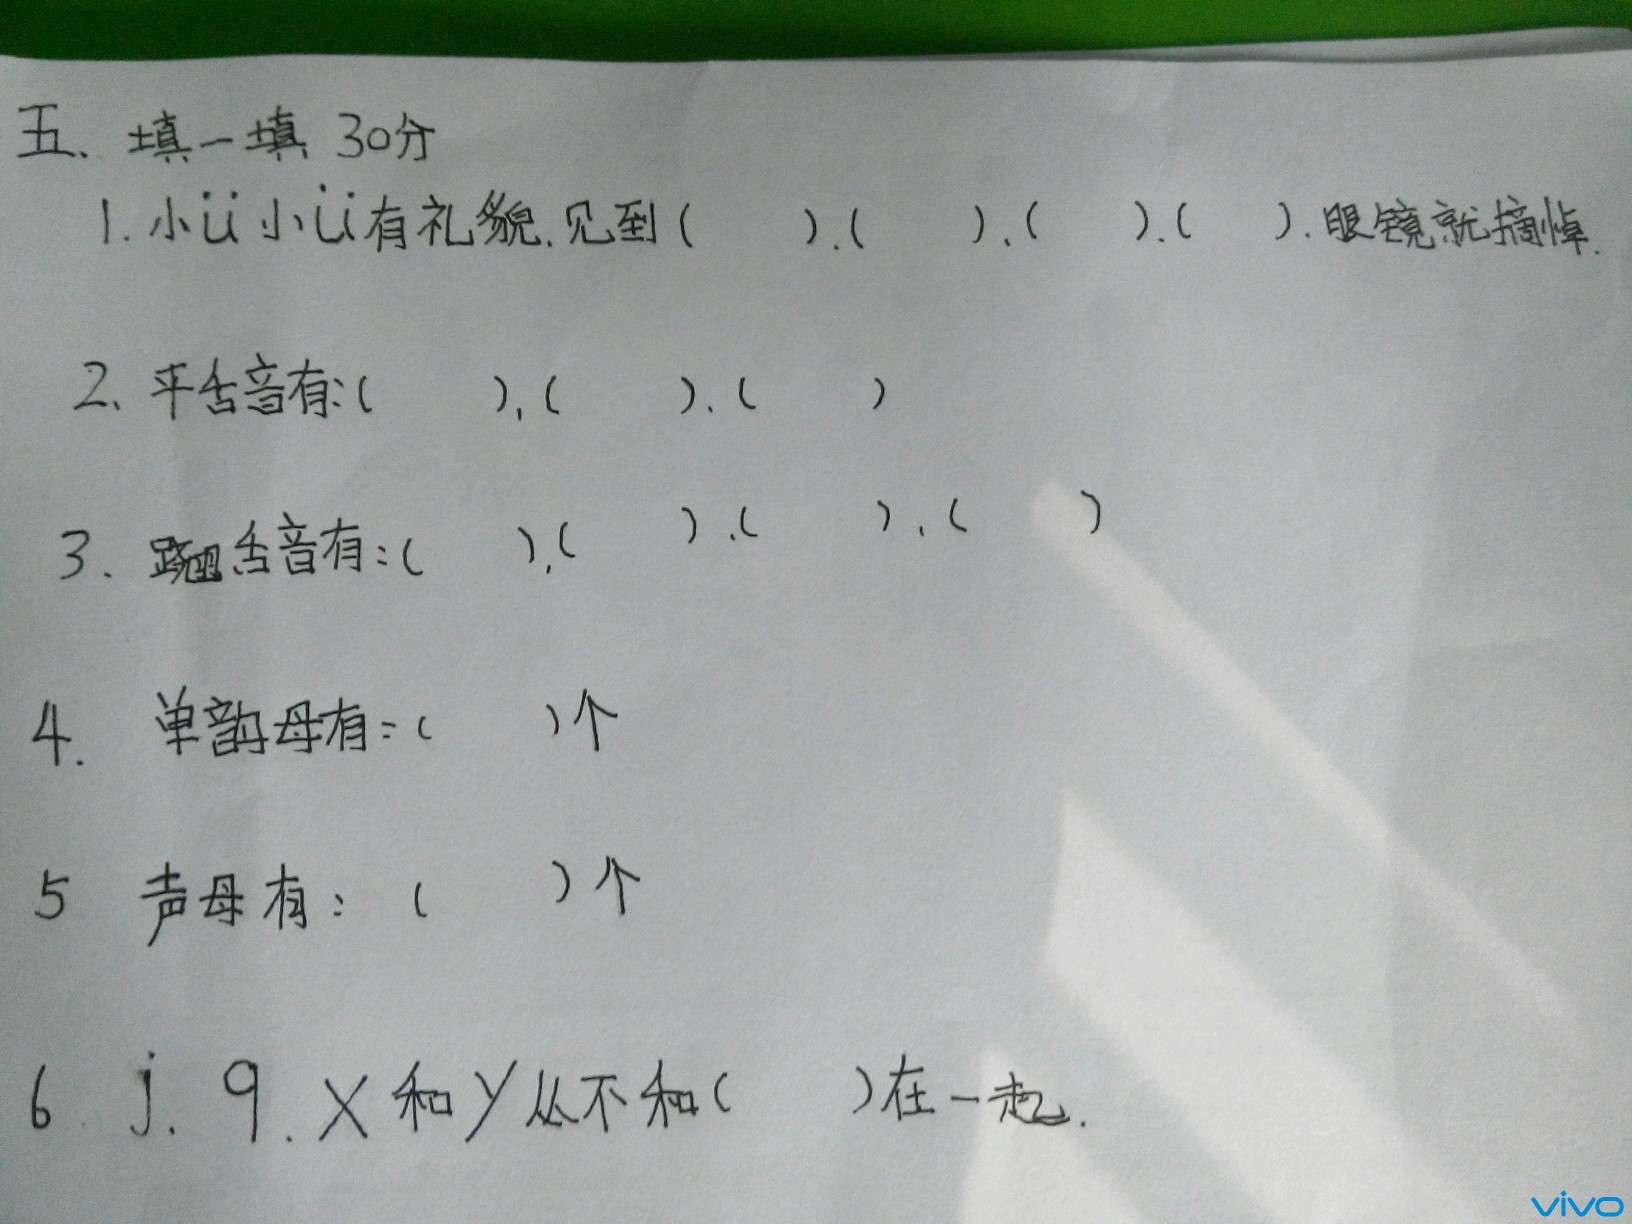 五、填一填 30分
1.小ü小ü有礼貌.见到( ).( ).( ).( ).眼镜就摘悼.
2、平舌音有:( ),( ).( )
3.翘舌音有:( ),( ).( ).( )
4.单韵母有:( )个
5 声母有:( )个
6 j.q.x和y从不和( )在一起.
vivo